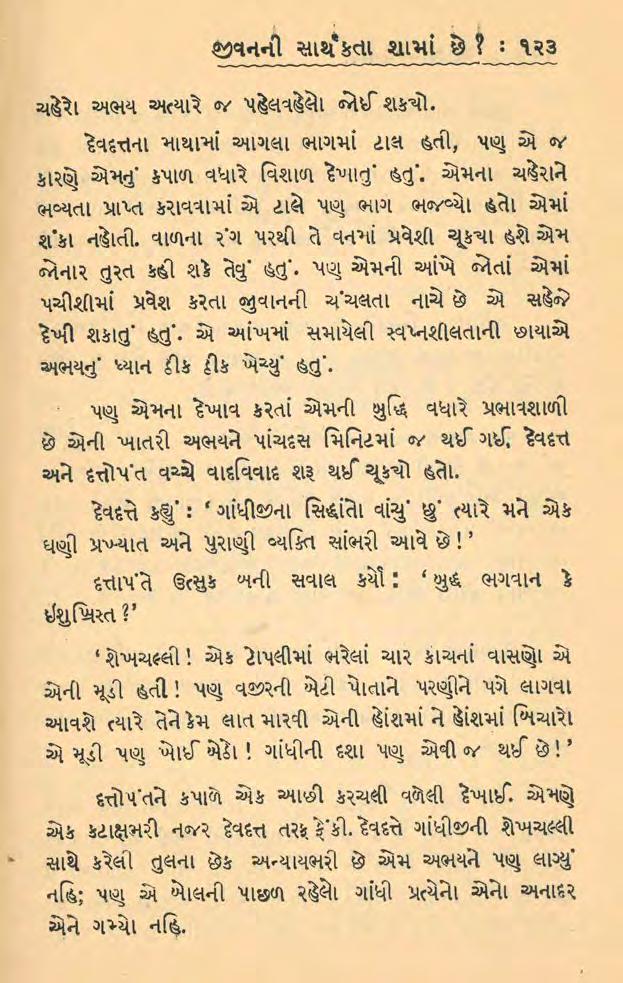 જીવનની સાર્થકતા શામાં છે ? : ૧૨૩
ચહેરો અભય અત્યારે જ પહેલવહેલો જોઈ શક્યો.
દેવદત્તના માથામાં આગલા ભાગમાં ટાલ હતી, પણ એ જ
કારણે એમનું કપાળ વધારે વિશાળ દેખાતું હતું. એમના ચહેરાને
ભવ્યતા પ્રાપ્ત કરાવવામાં એ ટાલે પણ ભાગ ભજવ્યો હતો એમાં
શંકા નહોતી. વાળના રંગ પરથી તે વનમાં પ્રવેશી ચૂક્યા હશે એમ
જોનાર તુરત કહી શકે તેવું હતું. પણ એમની આંખે જોતાં એમાં
પચીશીમાં પ્રવેશ કરતા જુવાનની ચંચલતા નાચે છે એ સહેજે
દેખી શકાતું હતું. એ આંખમાં સમાયેલી સ્વપ્નશીલતાની છાયાએ
અભયનું ધ્યાન ઠીક ઠીક ખેંચ્યું હતું.
પણ એમના દેખાવ કરતાં એમની બુદ્ધિ વધારે પ્રભાવશાળી
છે એની ખાતરી અભયને પાંચદસ મિનિટમાં જ થઈ ગઈ. દેવદત્ત
અને દત્તોપંત વચ્ચે વાદવિવાદ શરૂ થઈ ચૂક્યો હતો.
દેવદત્તે કહ્યું : ‘ગાંધીજીના સિદ્ધાંતો વાંચું છું ત્યારે મને એક
ઘણી પ્રખ્યાત અને પુરાણી વ્યક્તિ સાંભરી આવે છે !’
દત્તાપંતે ઉત્સુક બની સવાલ કર્યો : ‘બુદ્ધ ભગવાન કે
ઇશુખ્રિસ્ત ?’
‘શેખચલ્લી ! એક ટોપલીમાં ભરેલાં ચાર કાચનાં વાસણો એ
એની મૂડી હતી ! પણ વજીરની બેટી પોતાને પરણીને પગે લાગવા
આવશે ત્યારે તેને કેમ લાત મારવી એની હોંશમાં ને હોંશમાં બિચારો
એ મૂડી પણ ખોઈ બેઠો ! ગાંધીની દશા પણ એવી જ થઈ છે !’
દત્તોપંતને કપાળે એક આછી કરચલી વળેલી દેખાઈ. એમણે
એક કટાક્ષભરી નજર દેવદત્ત તરફ ફેંકી. દેવદત્તે ગાંધીજીની શેખચલ્લી
સાથે કરેલી તુલના છેક અન્યાયભરી છે એમ અભયને પણ લાગ્યું
નહિ; પણ એ બોલની પાછળ રહેલો ગાંધી પ્રત્યેનો એનો અનાદર
એને ગમ્યો નહિ.